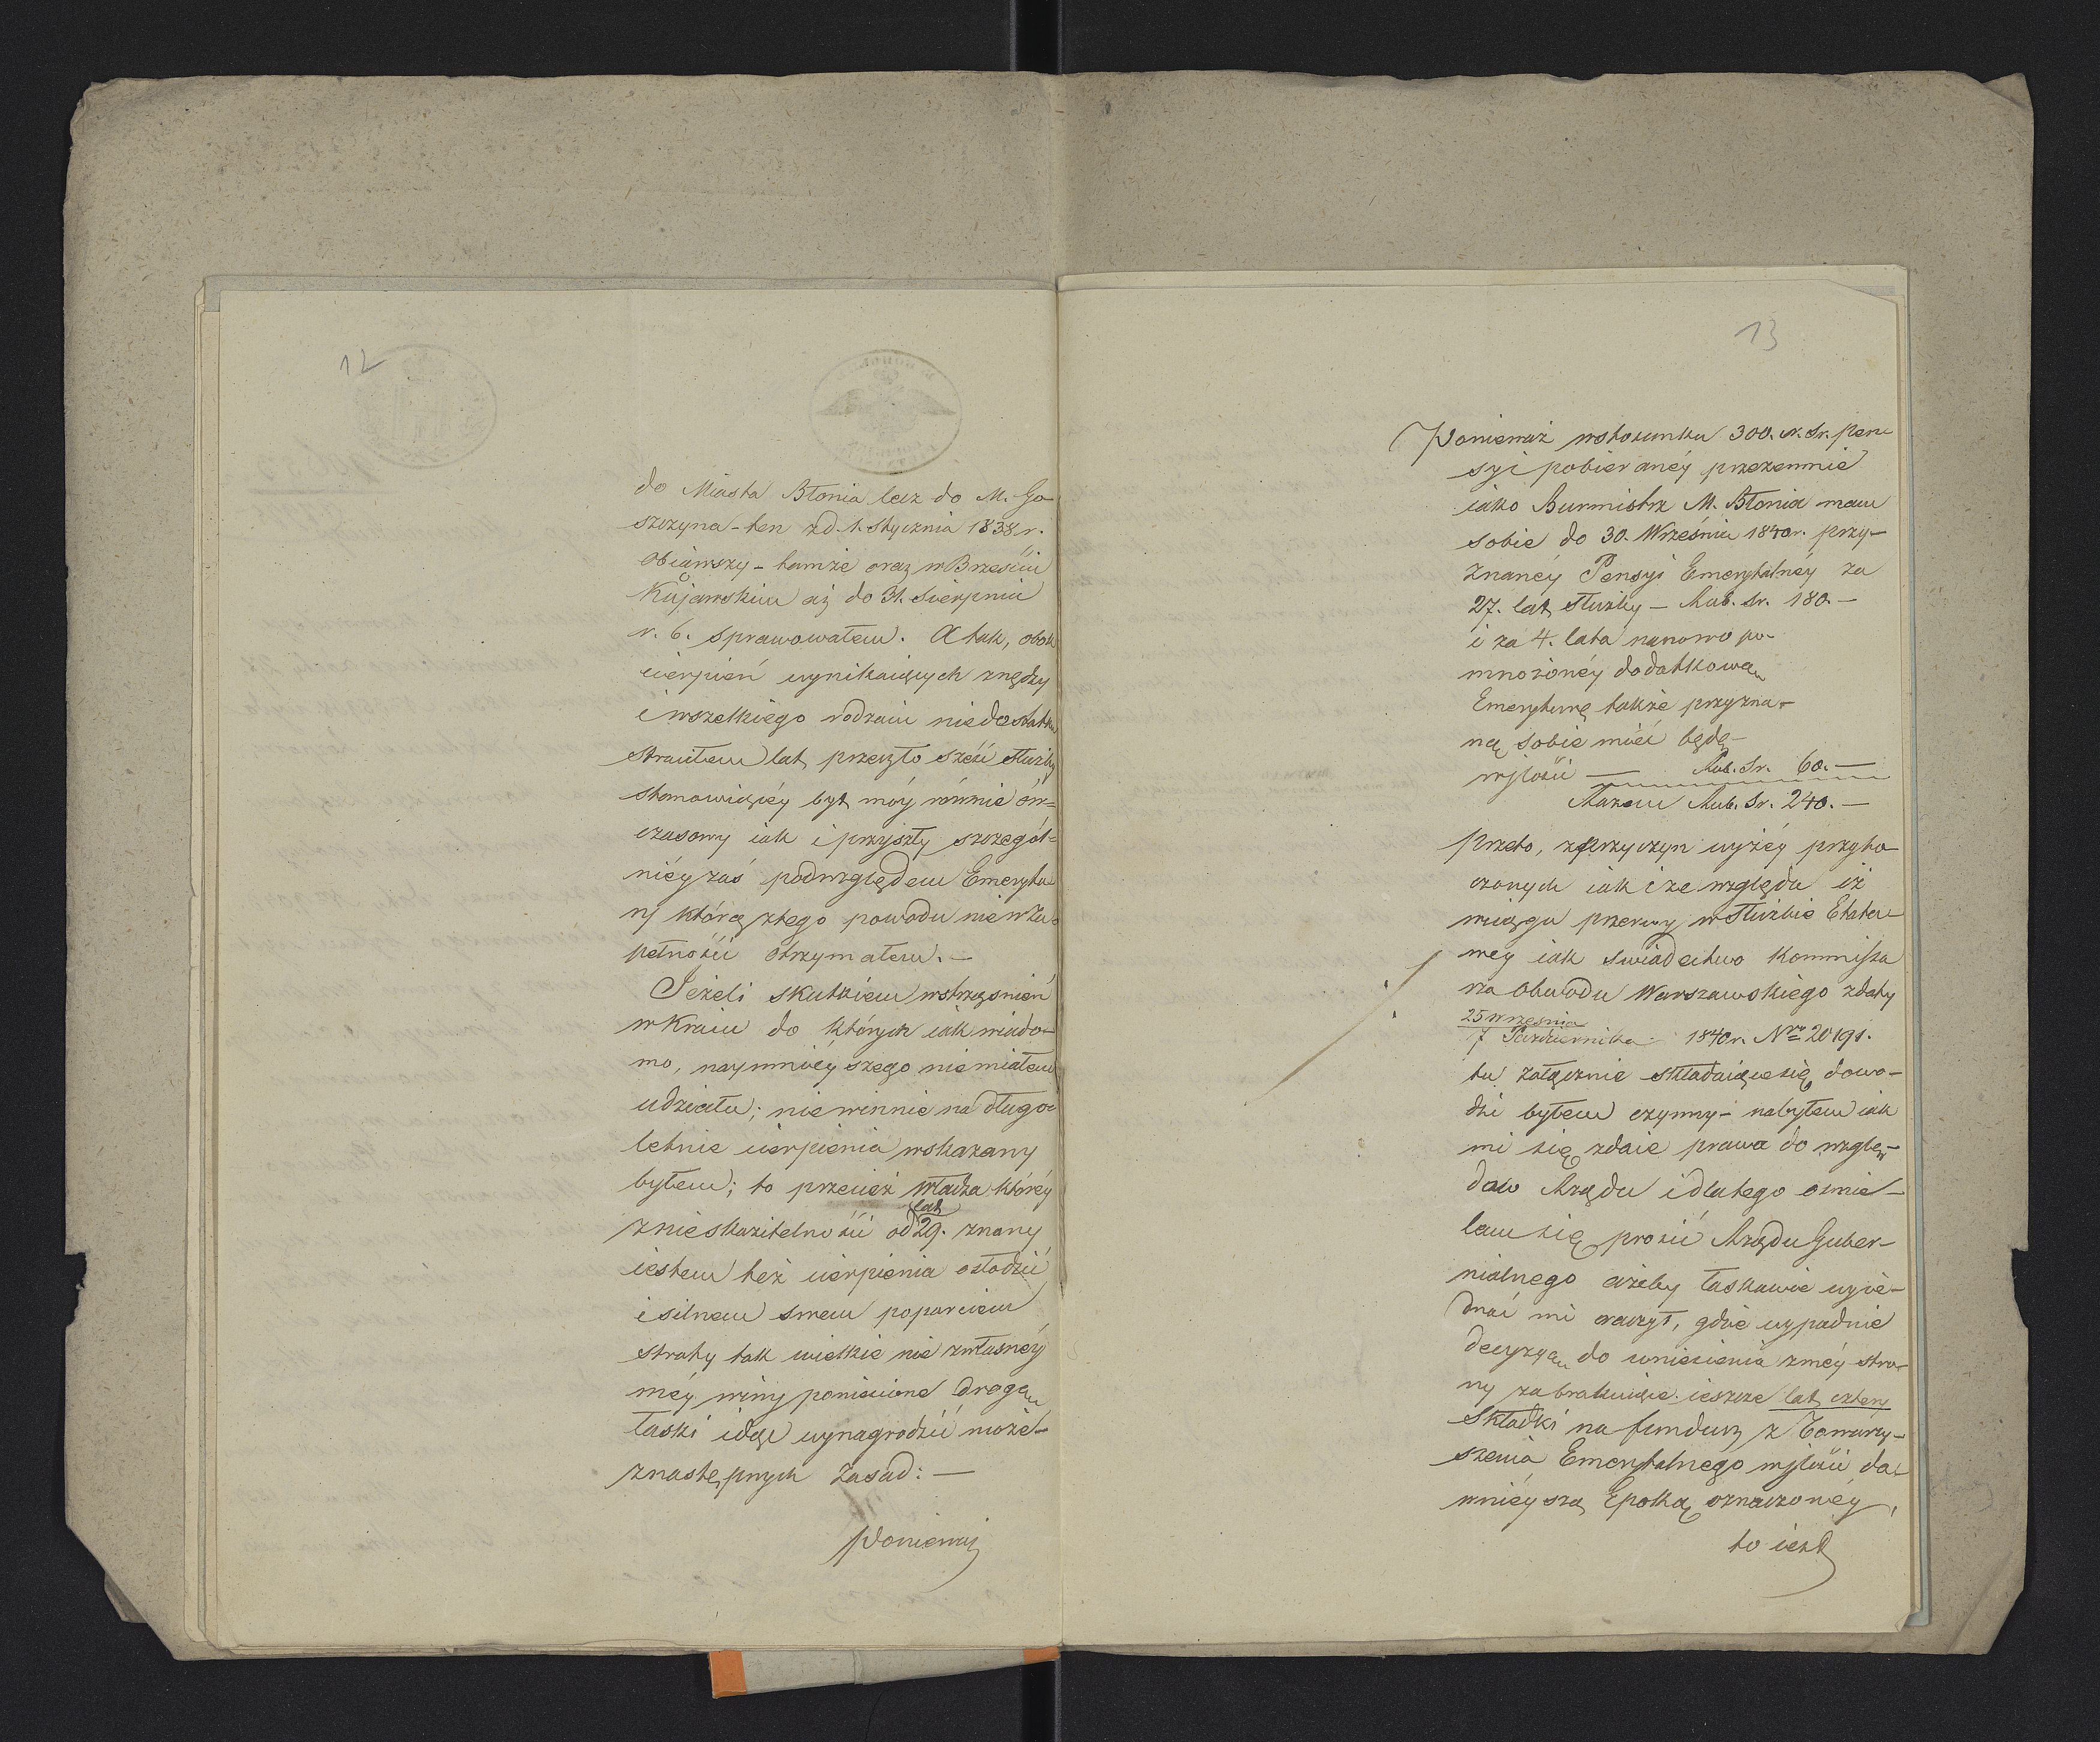 12
do Miasta Błonia lecz do M. Go-
szczyna - ten z d. 1. Stycznia 1838 r.
obiąwszy - tamże oraz w Brześciu
Kujawskim aż do 31. Sierpnia
r. b. sprawowałem. A tak, obok
cierpień wynikaiących z nędzy
i wszelkiego rodzaiu niedostatku
straciłem lat przeszło sześć służby
stanowiącéy byt móy równie ów=
czasowy iak i przyszły szczegól=
niéy zaś pod względem Emerytu
ry którą z tego powodu nie w zu=
pełności otrzymałem. —
Jeżeli skutkiem wstrząśnień
w kraiu do których iak wiado-
mo, naymnieyszego nie miałem
udziału; niewinnie na długo=
letnie cierpienia wskazany
byłem; to przecież Władza któréy
lat
z nieskazitelności od 29. znany
iestem też cierpienia osłodzić
i silnem swem poparciem
straty tak wielkie nie z własnéy
méy winy poniesione drogą
łaski idąc wynagrodzić może -
z następnych zasad: —
Ponieważ
13
Ponieważ w stosunku 300. r. sr. pen=
syi pobieranéy przezemnie
iako Burmistrz M. Błonia mam
sobie do 30. Września 1840 r. przy-
znanéy Pensyi Emerytalnéy za
27. lat służby — Rub. sr. 180. —
i za 4. lata nanowo po-
mnożonéy dodatkową
Emeryturę także przyzna-
ną sobie mieć będę
w ilości — Rub. Sr. 60. —
Razem Rub. Sr. 240. —
przeto, z przyczyn wyżéy przyto
czonych iak i ze względu iż
w ciągu przerwy w Służbie Etato=
wéy iak świadectwo Kommissa
rza Obwodu Warszawskiego z daty
25 września
7 Października 1840 r. Nro 20191.
tu załącznie składaiące się dowo-
dzi byłem czynny - nabyłem iak
mi się zdaie prawa do wzglę-
dów Rządu i dlatego ośmie-
lam się prosić Rządu Guber-
nialnego ażeby łaskawie wyie-
dnać mi raczył, gdzie wypadnie
decyzyą do wniesienia z méy stro-
ny zabrakuiące ieszcze lat cztery
Składki na fundusz z Towarzy-
szenia Emerytalnego w ilości da-
wnieyszą Epoką oznaczonéy,
to iest